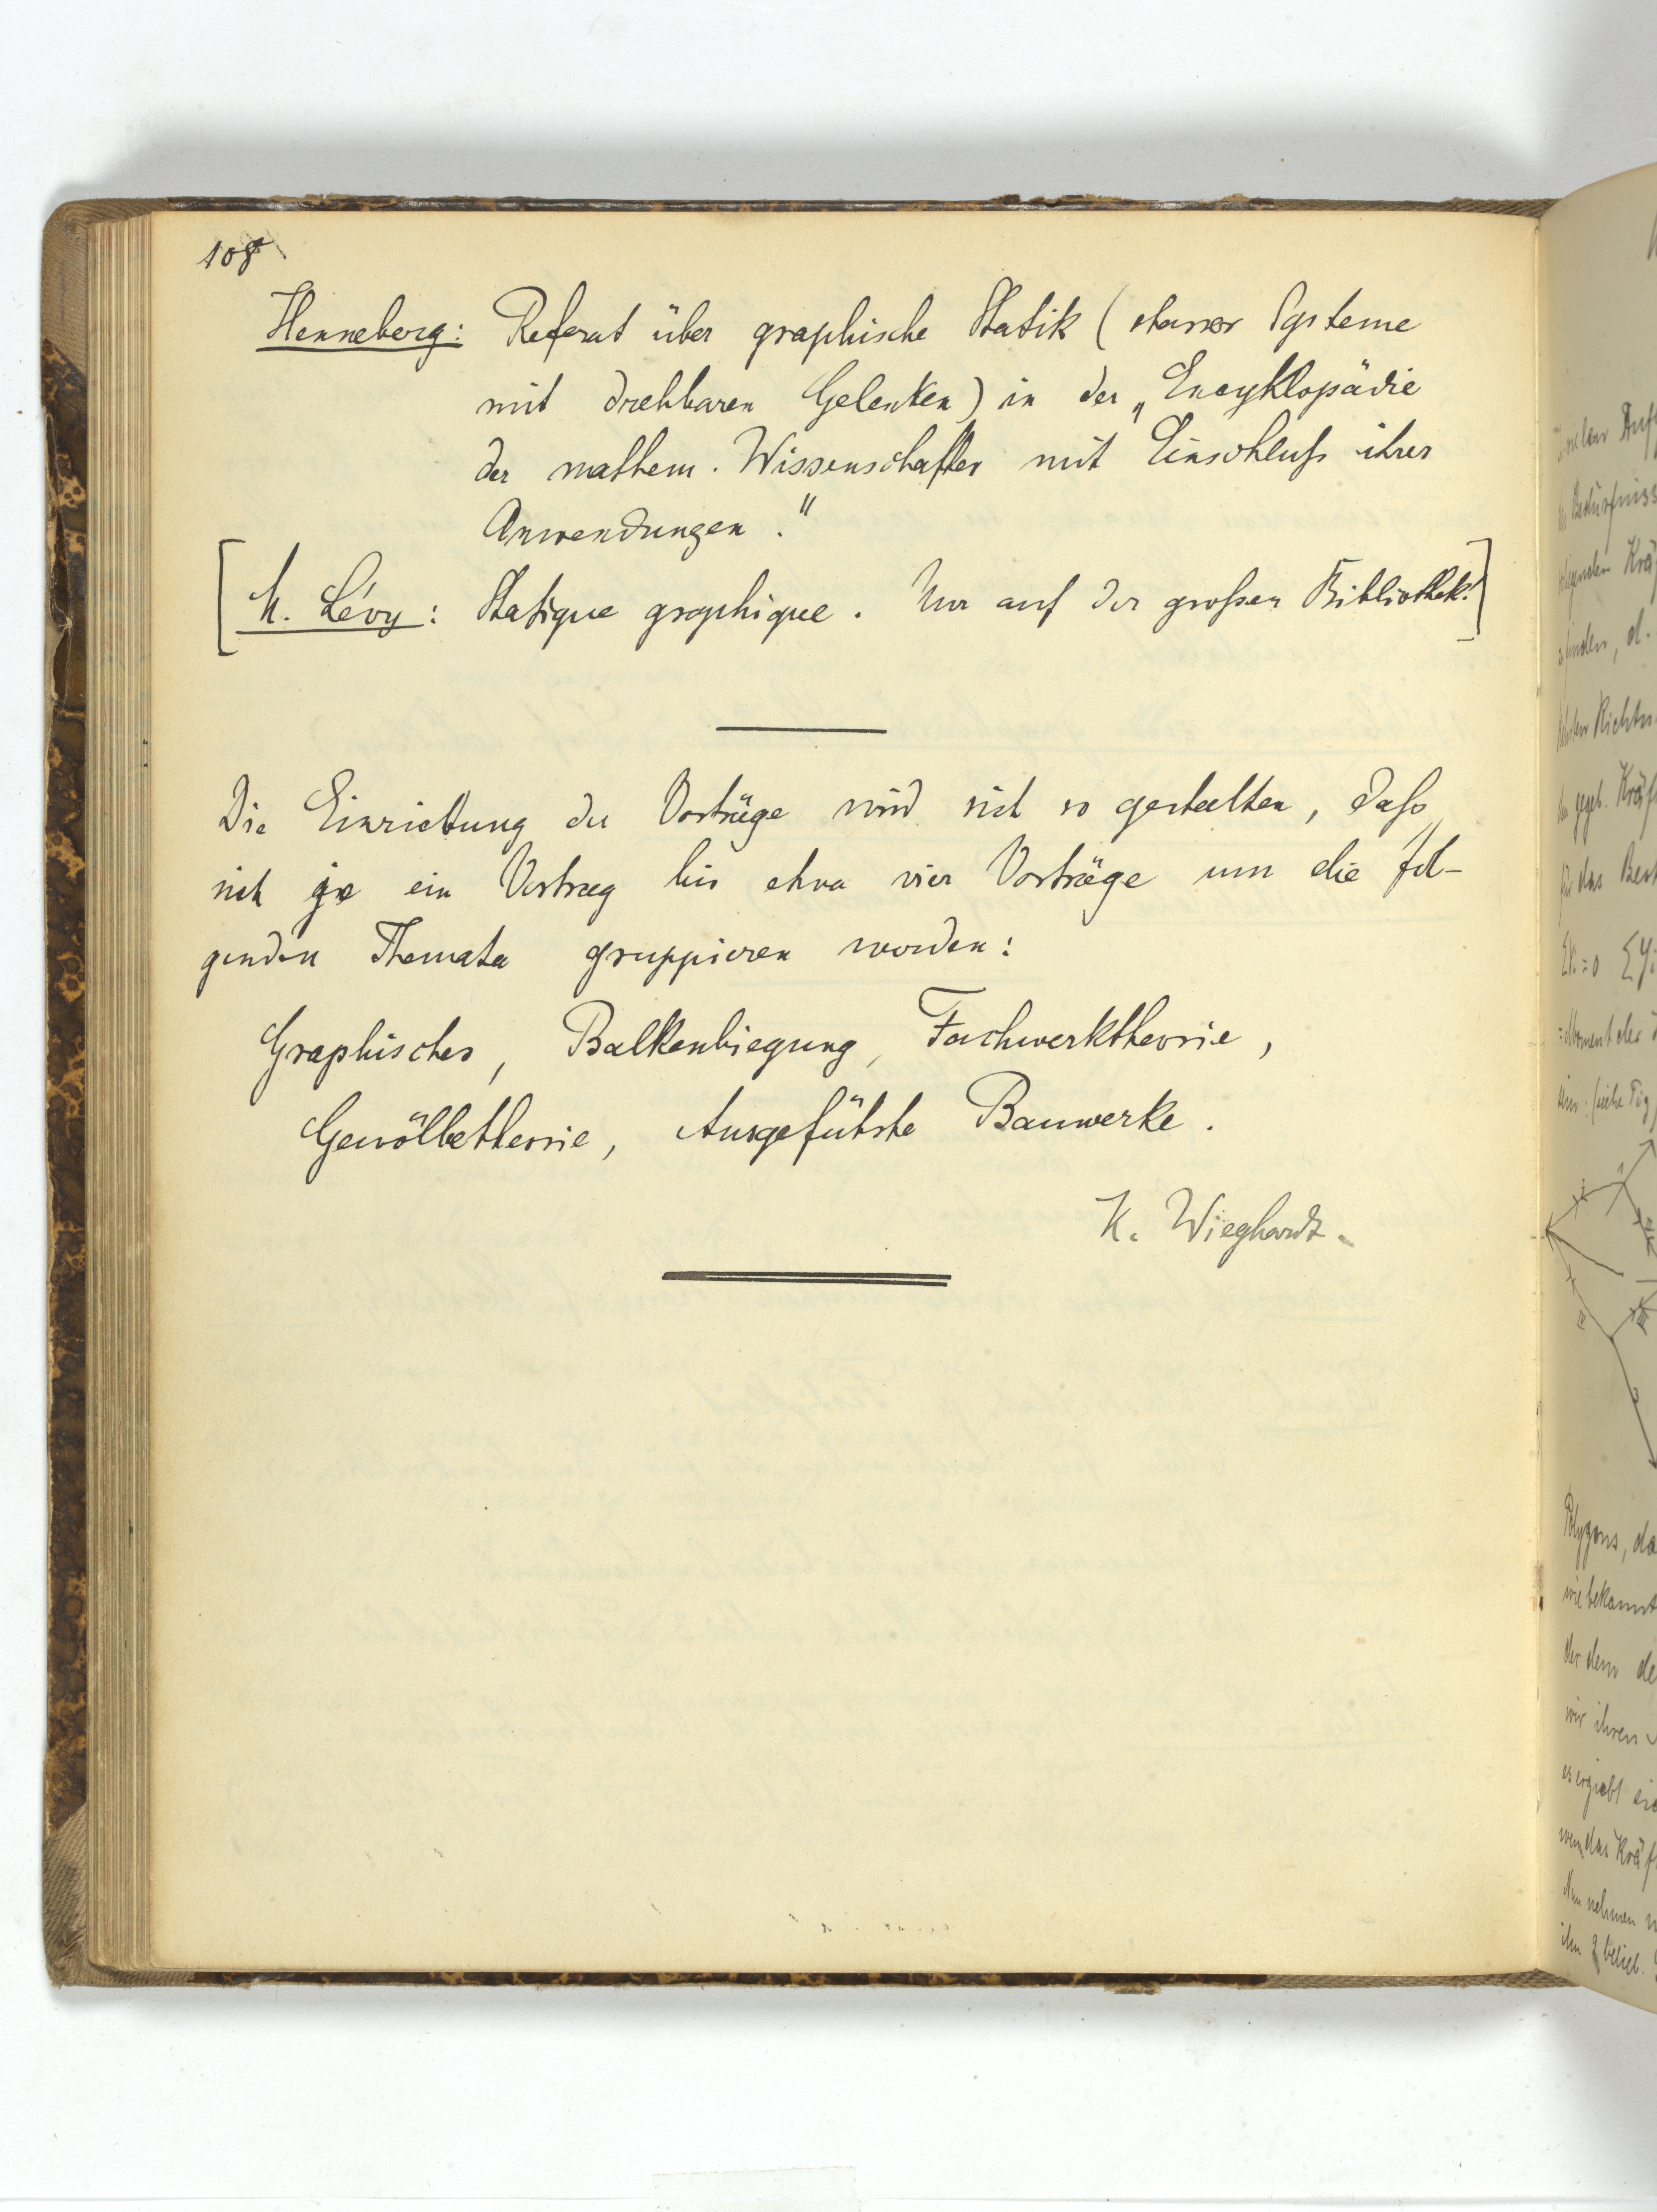 108
Henneberg: Referat über graphische Statik (starrer Systeme
mit drehbaren Gelenken) in der „Encyklopädie
der mathem. Wissenschaften mit Einschluß ihrer
Anwendungen."
[M. Lévy: Statique graphique. Nur auf der großen Bibliothek!]
Die Einrichtung der Vorträge wird sich so gestalten, daß
sich je ein Vortrag bis etwa vier Vorträge um die fol-
genden Themata gruppieren werden:
Graphisches, Balkenbiegung, Fachwerktheorie,
Gewölbetheorie, Ausgeführte Bauwerke.
K. Wieghardt.